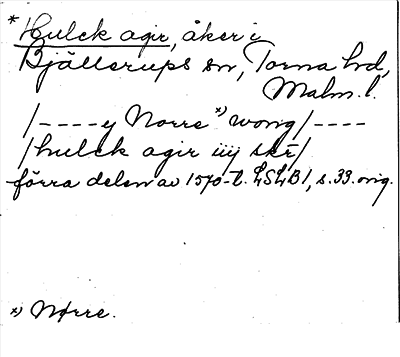 * Hulck agir, åker i
Bjällerups sn, Torna hd,
Malm. l.
/---- y Norre *) wong/----
/hulck agir iiij skr̄/
förra delen av 1570-t. LSLB I, s. 33. orig.
*) Nørre.